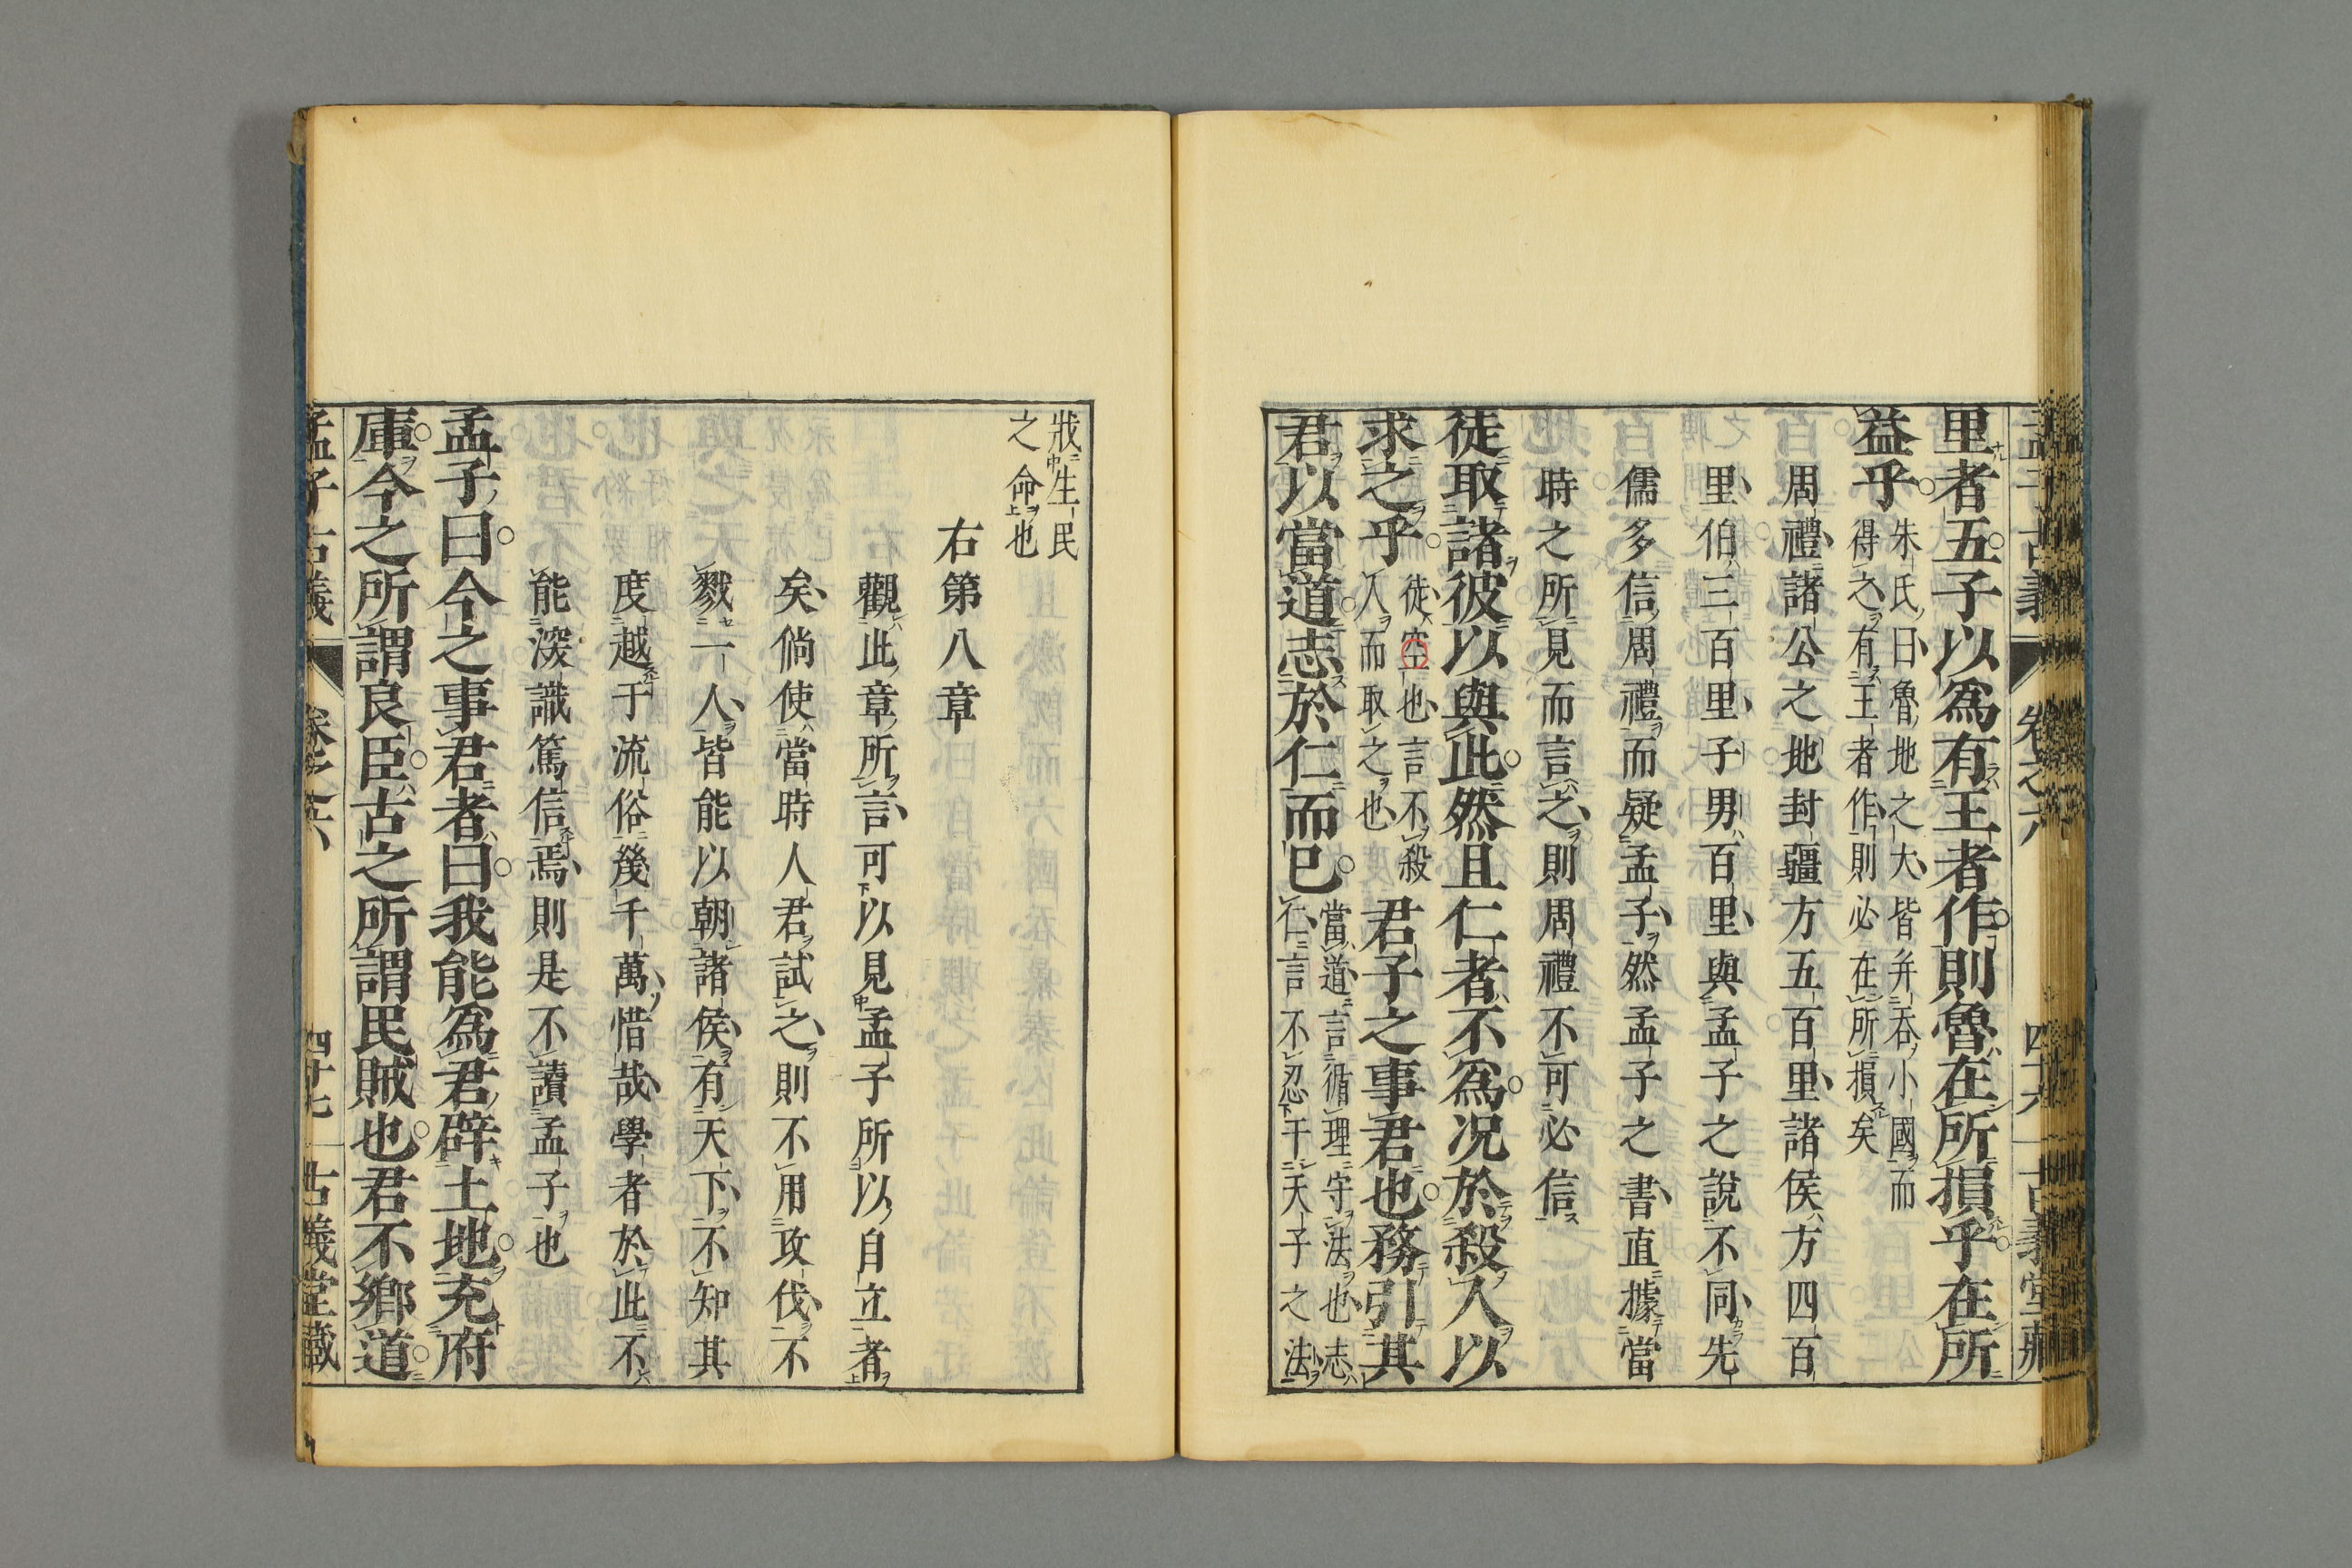 孟子古義 卷之六 四十六 古義堂藏
里者五子以爲有王者作則魯在所損乎在所
益乎 朱氏曰魯地之大皆并吞小國而
得之有王者作則必在所損矣
周禮諸公之地封疆方五百里諸侯方四百
里伯三百里子男百里與孟子之說不同先
儒多信周禮而疑孟子然孟子之書直據當
時之所見而言之則周禮不可必信
徒取諸彼以與此然且仁者不爲况於殺人以
求之乎 徒空也言不殺
人而取之也
君子之事君也務引其
君以當道志於仁而已 當道言循理守法也志
仁言不忍干天子之法
戕生民
之命也
右第八章
觀此章所言可以見孟子所以自立者
矣倘使當時人君試之則不用攻伐不
戮一人皆能以朝諸侯有天下不知其
度越于流俗幾千萬惜哉學者於此不
能深識篤信焉則是不讀孟子也
孟子曰今之事君者曰我能爲君辟土地充府
庫今之所謂良臣古之所謂民賊也君不鄉道
孟子古義 卷之六 四十七 古義堂藏